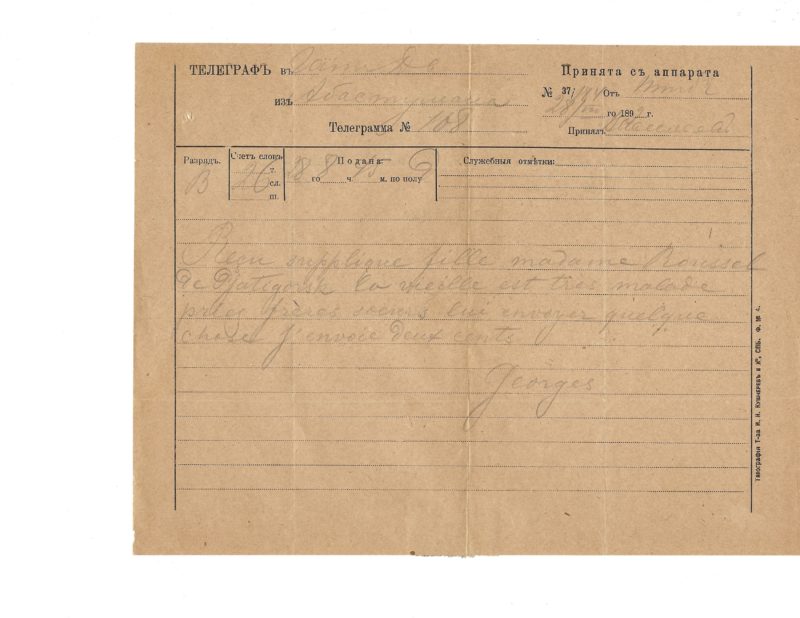 ТЕЛЕГРАФЪ въ
Принята съ аппарата
изъ Абастумана
№ 37/ Отъ
28/VIII го 189 г.
Телеграмма № 108
Принялъ
Разрядъ. Счетъ словъ Подана: Служебныя отмѣтки:
т.
В 26 сл. 28 го 8 ч. 45 м. по полу
ш.
Reçu supplique fille madame Roussel
de Pjatigorsk la vieille est très malade
pries frères soeurs lui envoyer quelque
chose j'envoie deux cents
Georges
Типографія Т-ва И. Н. Кушнеревъ и Ко, СПБ. Ф. № 4.